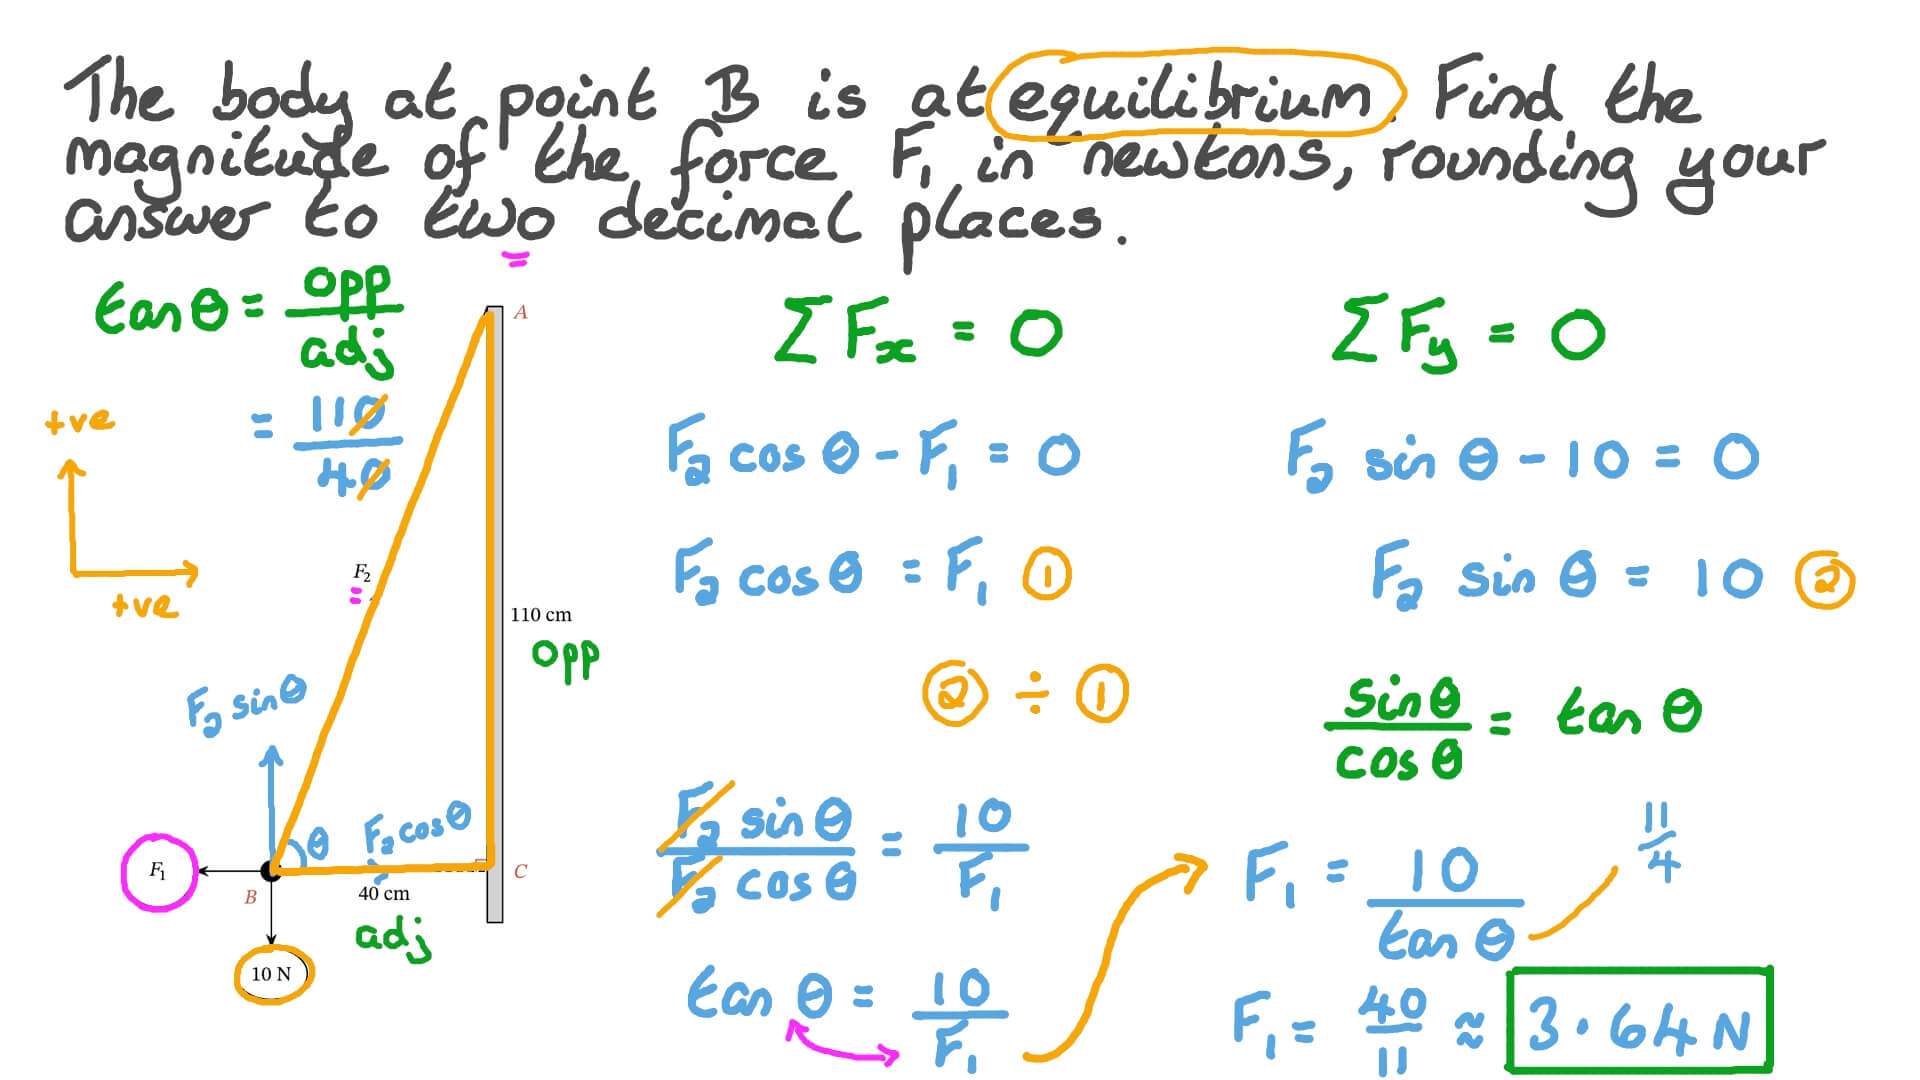 The body at point B is at equilibrium. Find the
magnitude of the force F₁ in newtons, rounding your
answer to two decimal places.
tan θ = opp/adj
= 110/40
+ve
+ve
A
F₂
110 cm
opp
F₂ sin θ
θ
F₂ cos θ
F₁
B
C
40 cm
adj
10 N
ΣFx = 0
F₂ cos θ - F₁ = 0
F₂ cos θ = F₁ ①
② ÷ ①
F₂ sin θ / F₂ cos θ = 10/F₁
tan θ = 10/F₁
ΣFy = 0
F₂ sin θ - 10 = 0
F₂ sin θ = 10 ②
sin θ / cos θ = tan θ
11/4
F₁ = 10/tan θ
F₁ = 40/11 ≈ 3.64 N